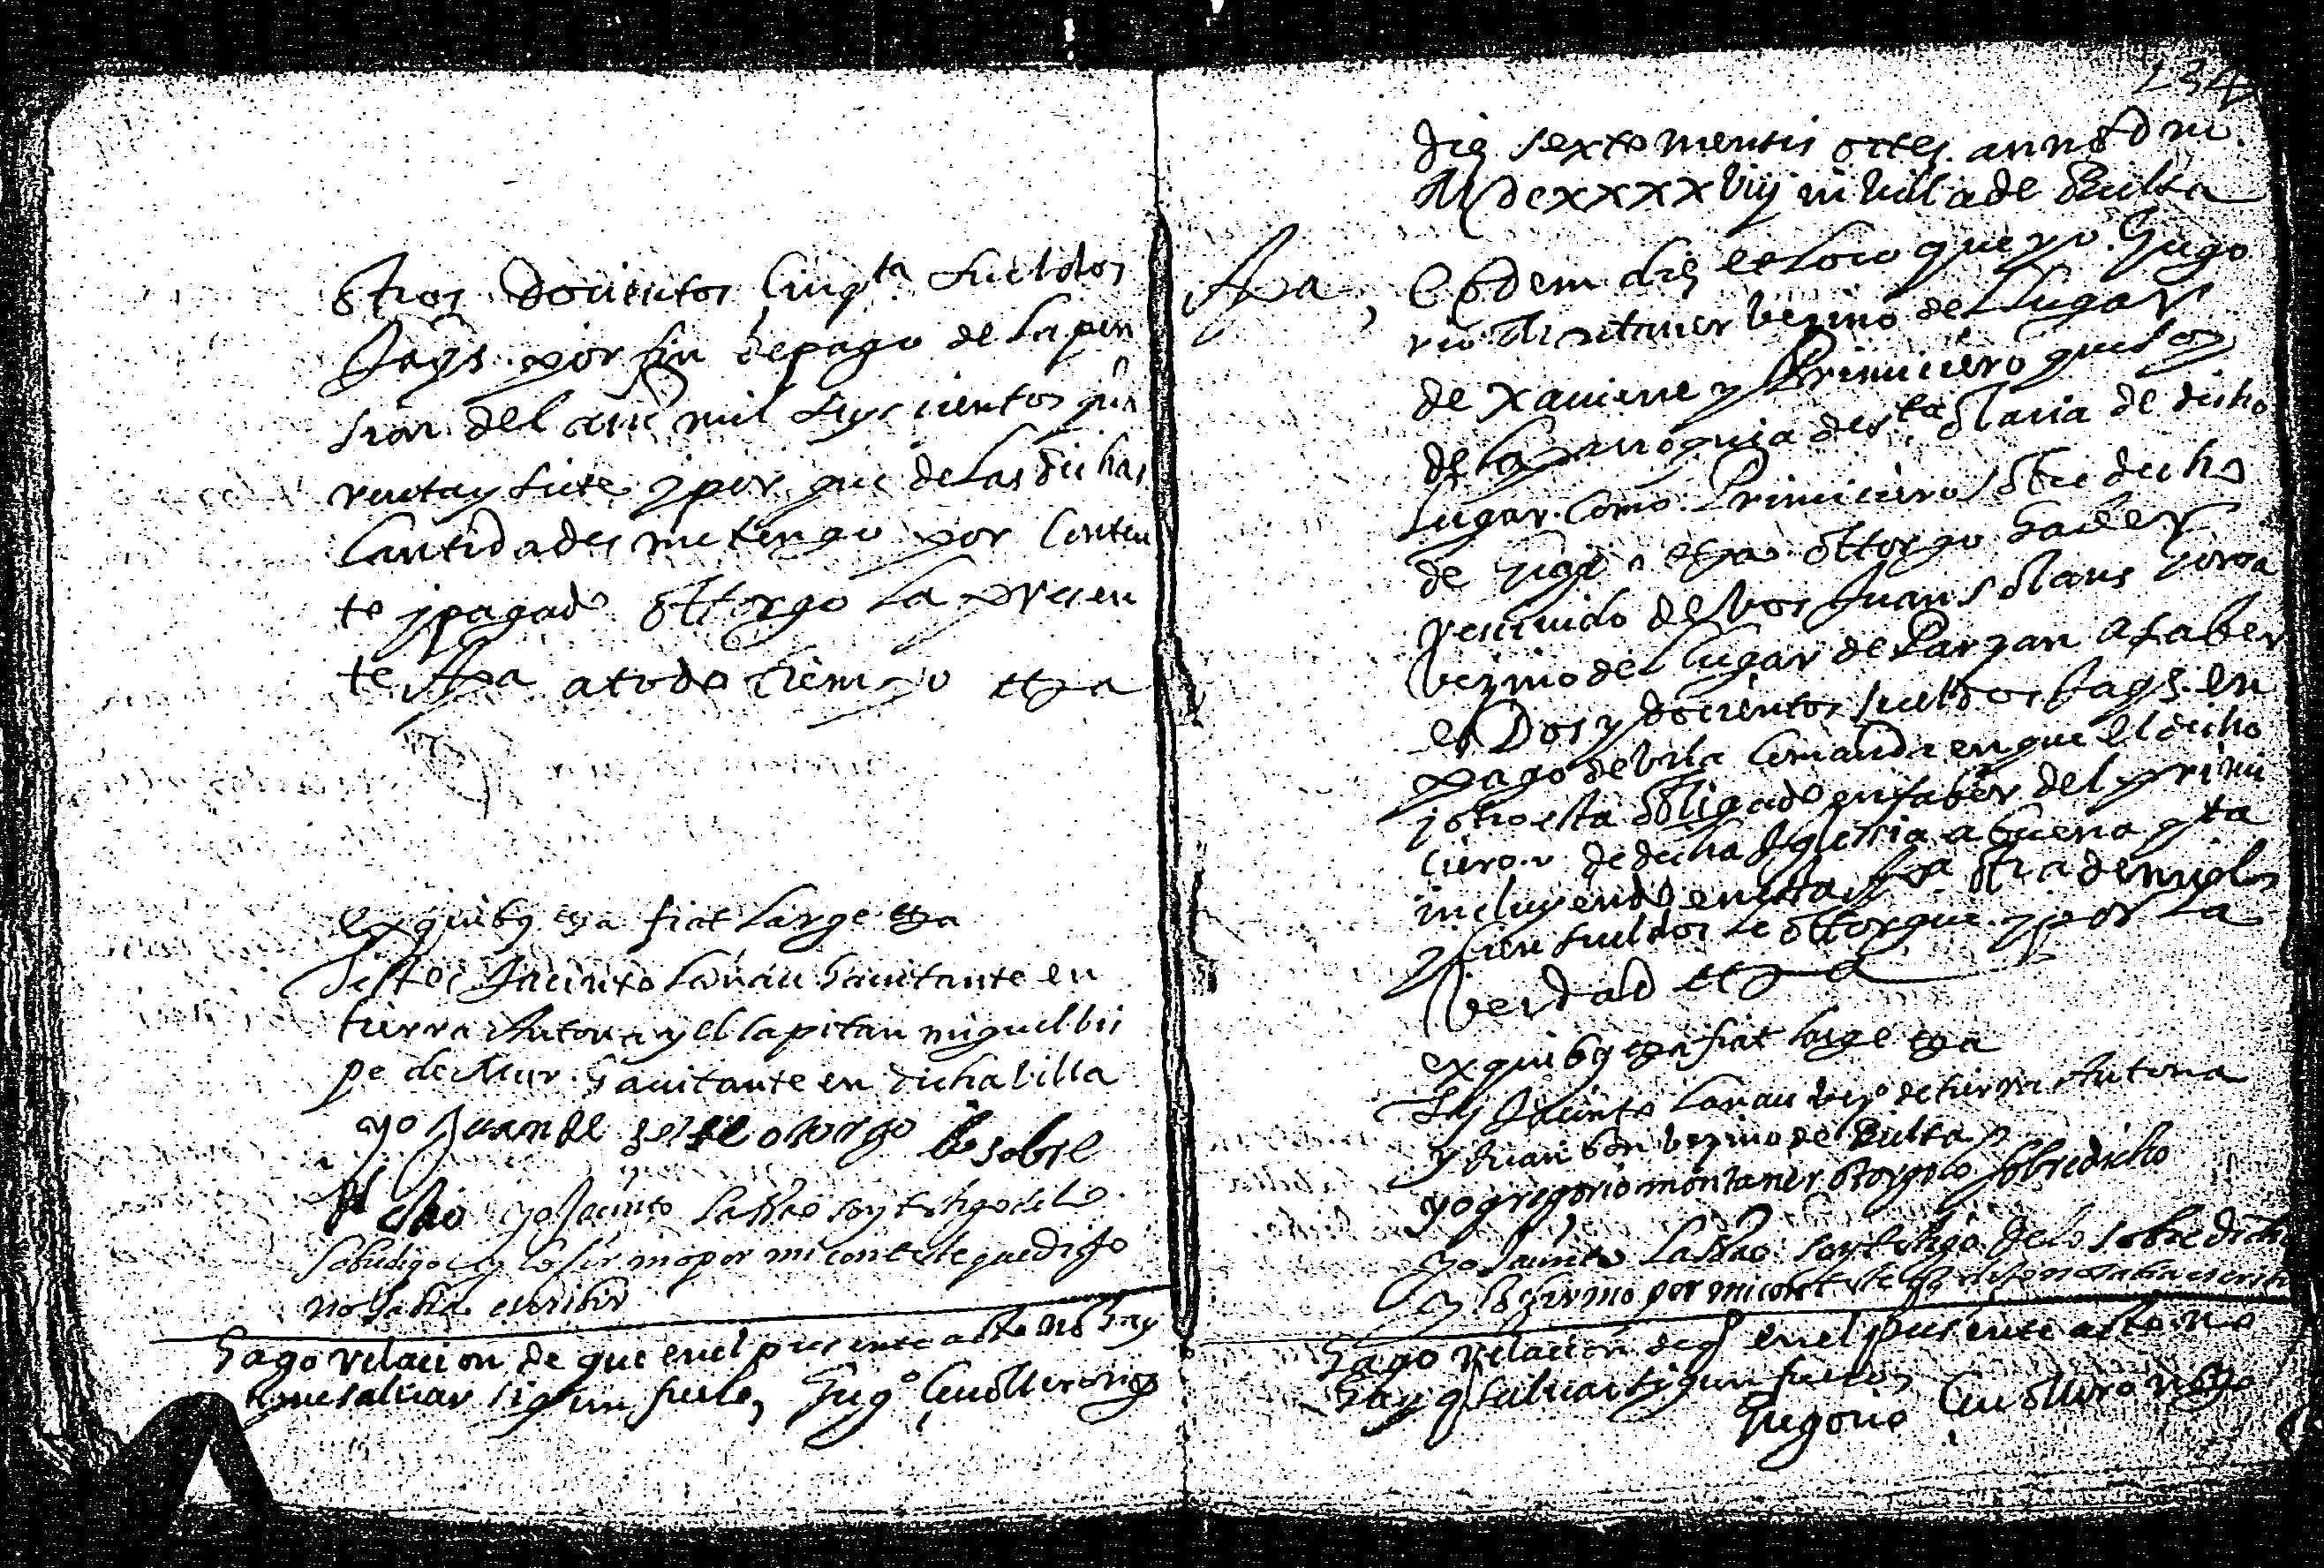 otros Docientos Cinqta sueldos
Jaqs. por fin de pago de la pen
sion del año mil seyscientos quã
renta y siete y por que de las dichas
Cantidades me tengo por Conten
te y pagado ottorgo la presen
te Apa a todo tiempo etza
ex quibus etza fiat large etza
Testes Jacinto Lanau hauitante en
tierra Antona y el Capitan miguel
pe de Mur hauitante en dicha billa
yo Juan de otorgo lo sobre
dicho yo Jacinto soy testigo de lo
sobredigo y lo firmo por mi conteste que dijo
no sabia escribir
Hago relacion de que en el presente acto no hay
que saluar sigun fuero, Gregº not
134
Die sexto mensis octes. anno Dni
MDCxxxxviij in Villa de Bielsa
Apa, Eodem die et loco que yo Grego
rio Montaner vezino del Lugar
de Xauierre y Primiciero que soy
de la parroquia de sta Maria de dicho
Lugar. Como Primiciero sobre dicho
de grado etza ottorgo hauer
resciuido de vos Juan Solans
vezino del Lugar de Parzan a saber
es Dos y docientos sueldos Jaqs. en
pago de vna Comanda en que el dicho
y otro esta obligado en fabor del primi
ciero de dicha Iglesia a buena qta
incluyendo en esta Apa otra de mil
y cien sueldos le ottorgue y por la
verdad etza
ex quibus etza fiat large etza
Ts Jacinto Lanau vezº de tierra Antona
y Juan bon vezino de Bielsa
yo gregorio montaner otorgo lo sobredicho
yo Jacinto soy testigo de lo sobredicho
y lo firmo por mi conteste q dijo no sabia escribir
Hago relacion de q en el presente acto no
hay q saluar sigun fuero
Gregorio noto